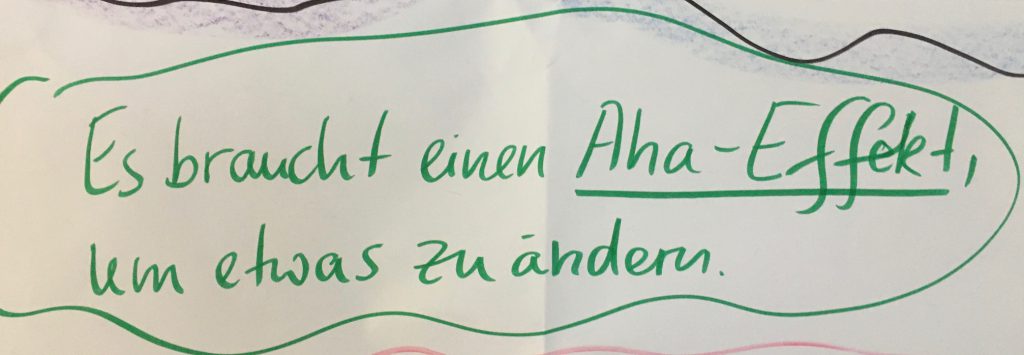 Es braucht einen Aha-Effekt,
um etwas zu ändern.